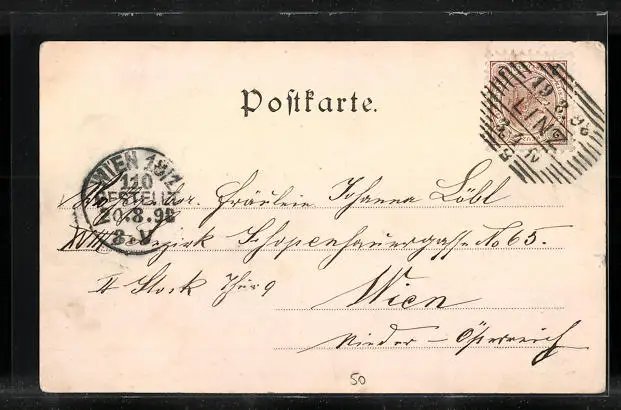 Postkarte.
LINZ
19 8 98
WIEN 18/1
110
BESTELLT
20.8.98
8.V
Fräulein Johanna Löbl
XVIII Bezirk Schopenhauergasse No 65.
II Stock Thür 9
Wien
Nieder-Österreich
50